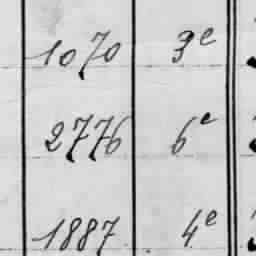 1070 3e
2776 6e
1887 4e